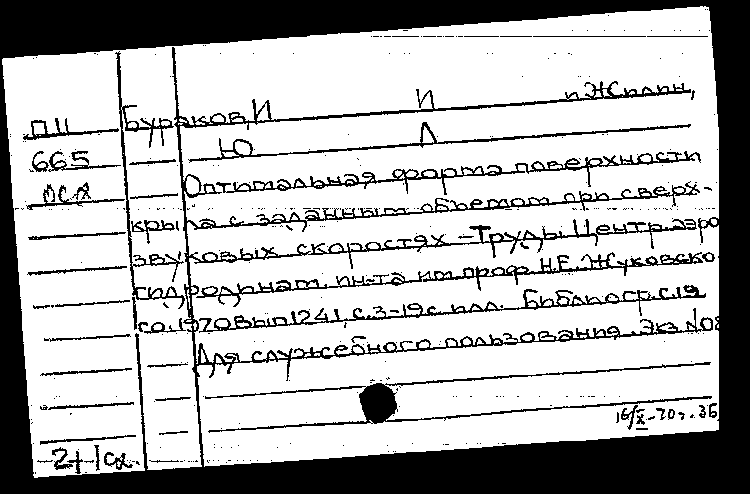 П11 Бураков, И И и Жилин,
665 Ю Л
Оптимальная форма поверхности
крыла с заданным объемом при сверх-
звуковых скоростях – Труды Центр. аэро
гидродинам. ин-та им. проф. Н.Е. Жуковско
го. 1970 вып 1241, с. 3-19 с илл. Библиогр. с. 19
Для служебного пользования. Экз. №08
16/X-70г. 36
2+1